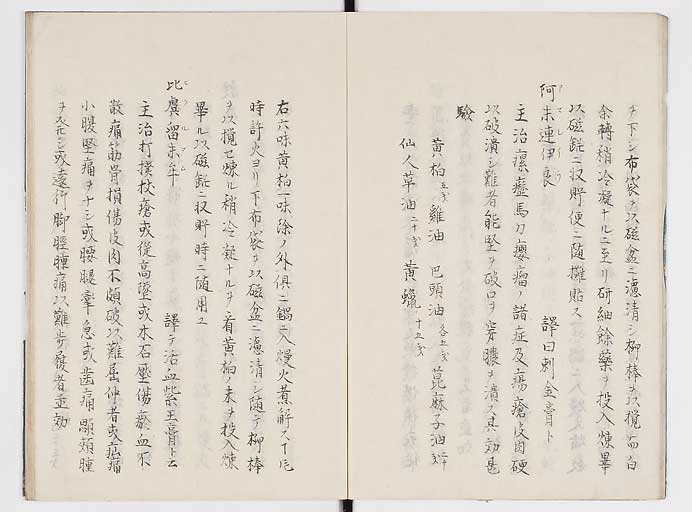 ヲ下シ布袋ヲ以磁盆ニ濾清シ柳棒ヲ以攪
余轉稍冷凝ナルニ至リ研細餘藥ヲ投入煉畢
以磁鑵ニ収貯便ニ随攤貼ス
何末連伊良 譯曰刺金膏ト
主治瘰癧馬刀癭瘤ノ諸症及瘍瘡皮肉硬
以破潰シ難者能堅ヲ破口ヲ穿膿ヲ潰ス其効甚
驗
黄柏 五戔 雞油 巴頭油 各五戔 萞麻子油
仙人草油 二十戔 黄蠟 十五戔
右六味黄柏一味除ノ外俱ニ鍋ニ入熳火煮解スㄧ片
時許火ヨリ下布袋ヲ以磁盆ニ濾清シ随テ柳棒
ヲ以攪セ煉ル稍冷凝ナルヲ看黄柏ノ末ヲ投入煉
畢ル以磁鑵ニ収貯時ニ随用ユ
比爾留末牟 譯テ活血紫王膏ト云
主治打撲杖瘡或從高墜或木石壓傷瘀血不
散痛筋骨損傷皮肉不破以難屈伸者或瘧痛
小腹堅痛ヲナシ或腰腿牽急或齒痛顋頰腫
ヲ或遠行脚腫痛以難步履者並効